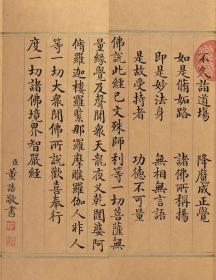 不久詣道場　降魔成正覺
如是脩妬路　諸佛所稱揚
即是妙法身　無相無言語
是故受持者　功德不可量
佛說此經已文殊師利等一切菩薩無
量緣覺及聲聞眾天龍夜叉乾闥婆阿
脩羅迦樓羅緊那羅摩睺羅伽人非人
等一切大眾聞佛所說歡喜奉行
度一切諸佛境界智嚴經
臣董誥敬書